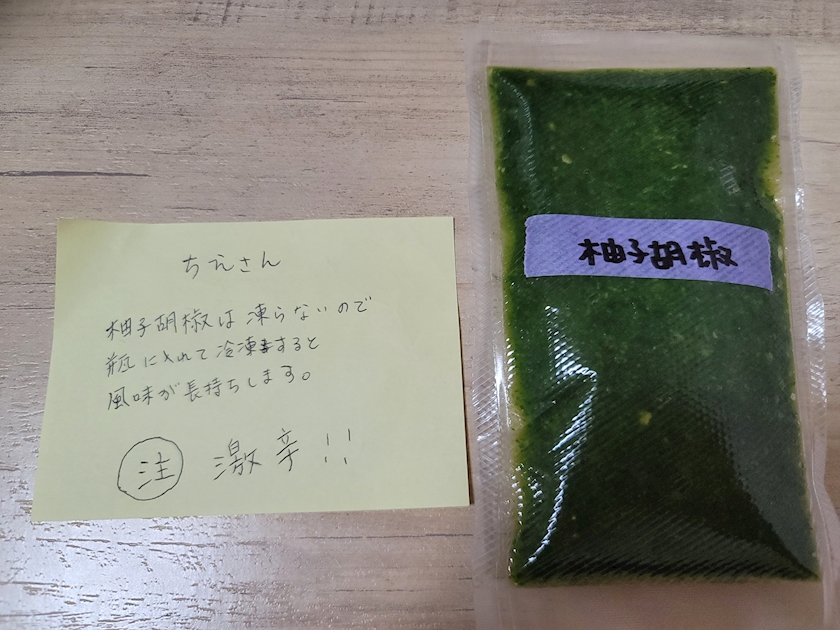 ちえさん
柚子胡椒は凍らないので
瓶に入れて冷凍すると
風味が長持ちします。
注 激辛!!
柚子胡椒